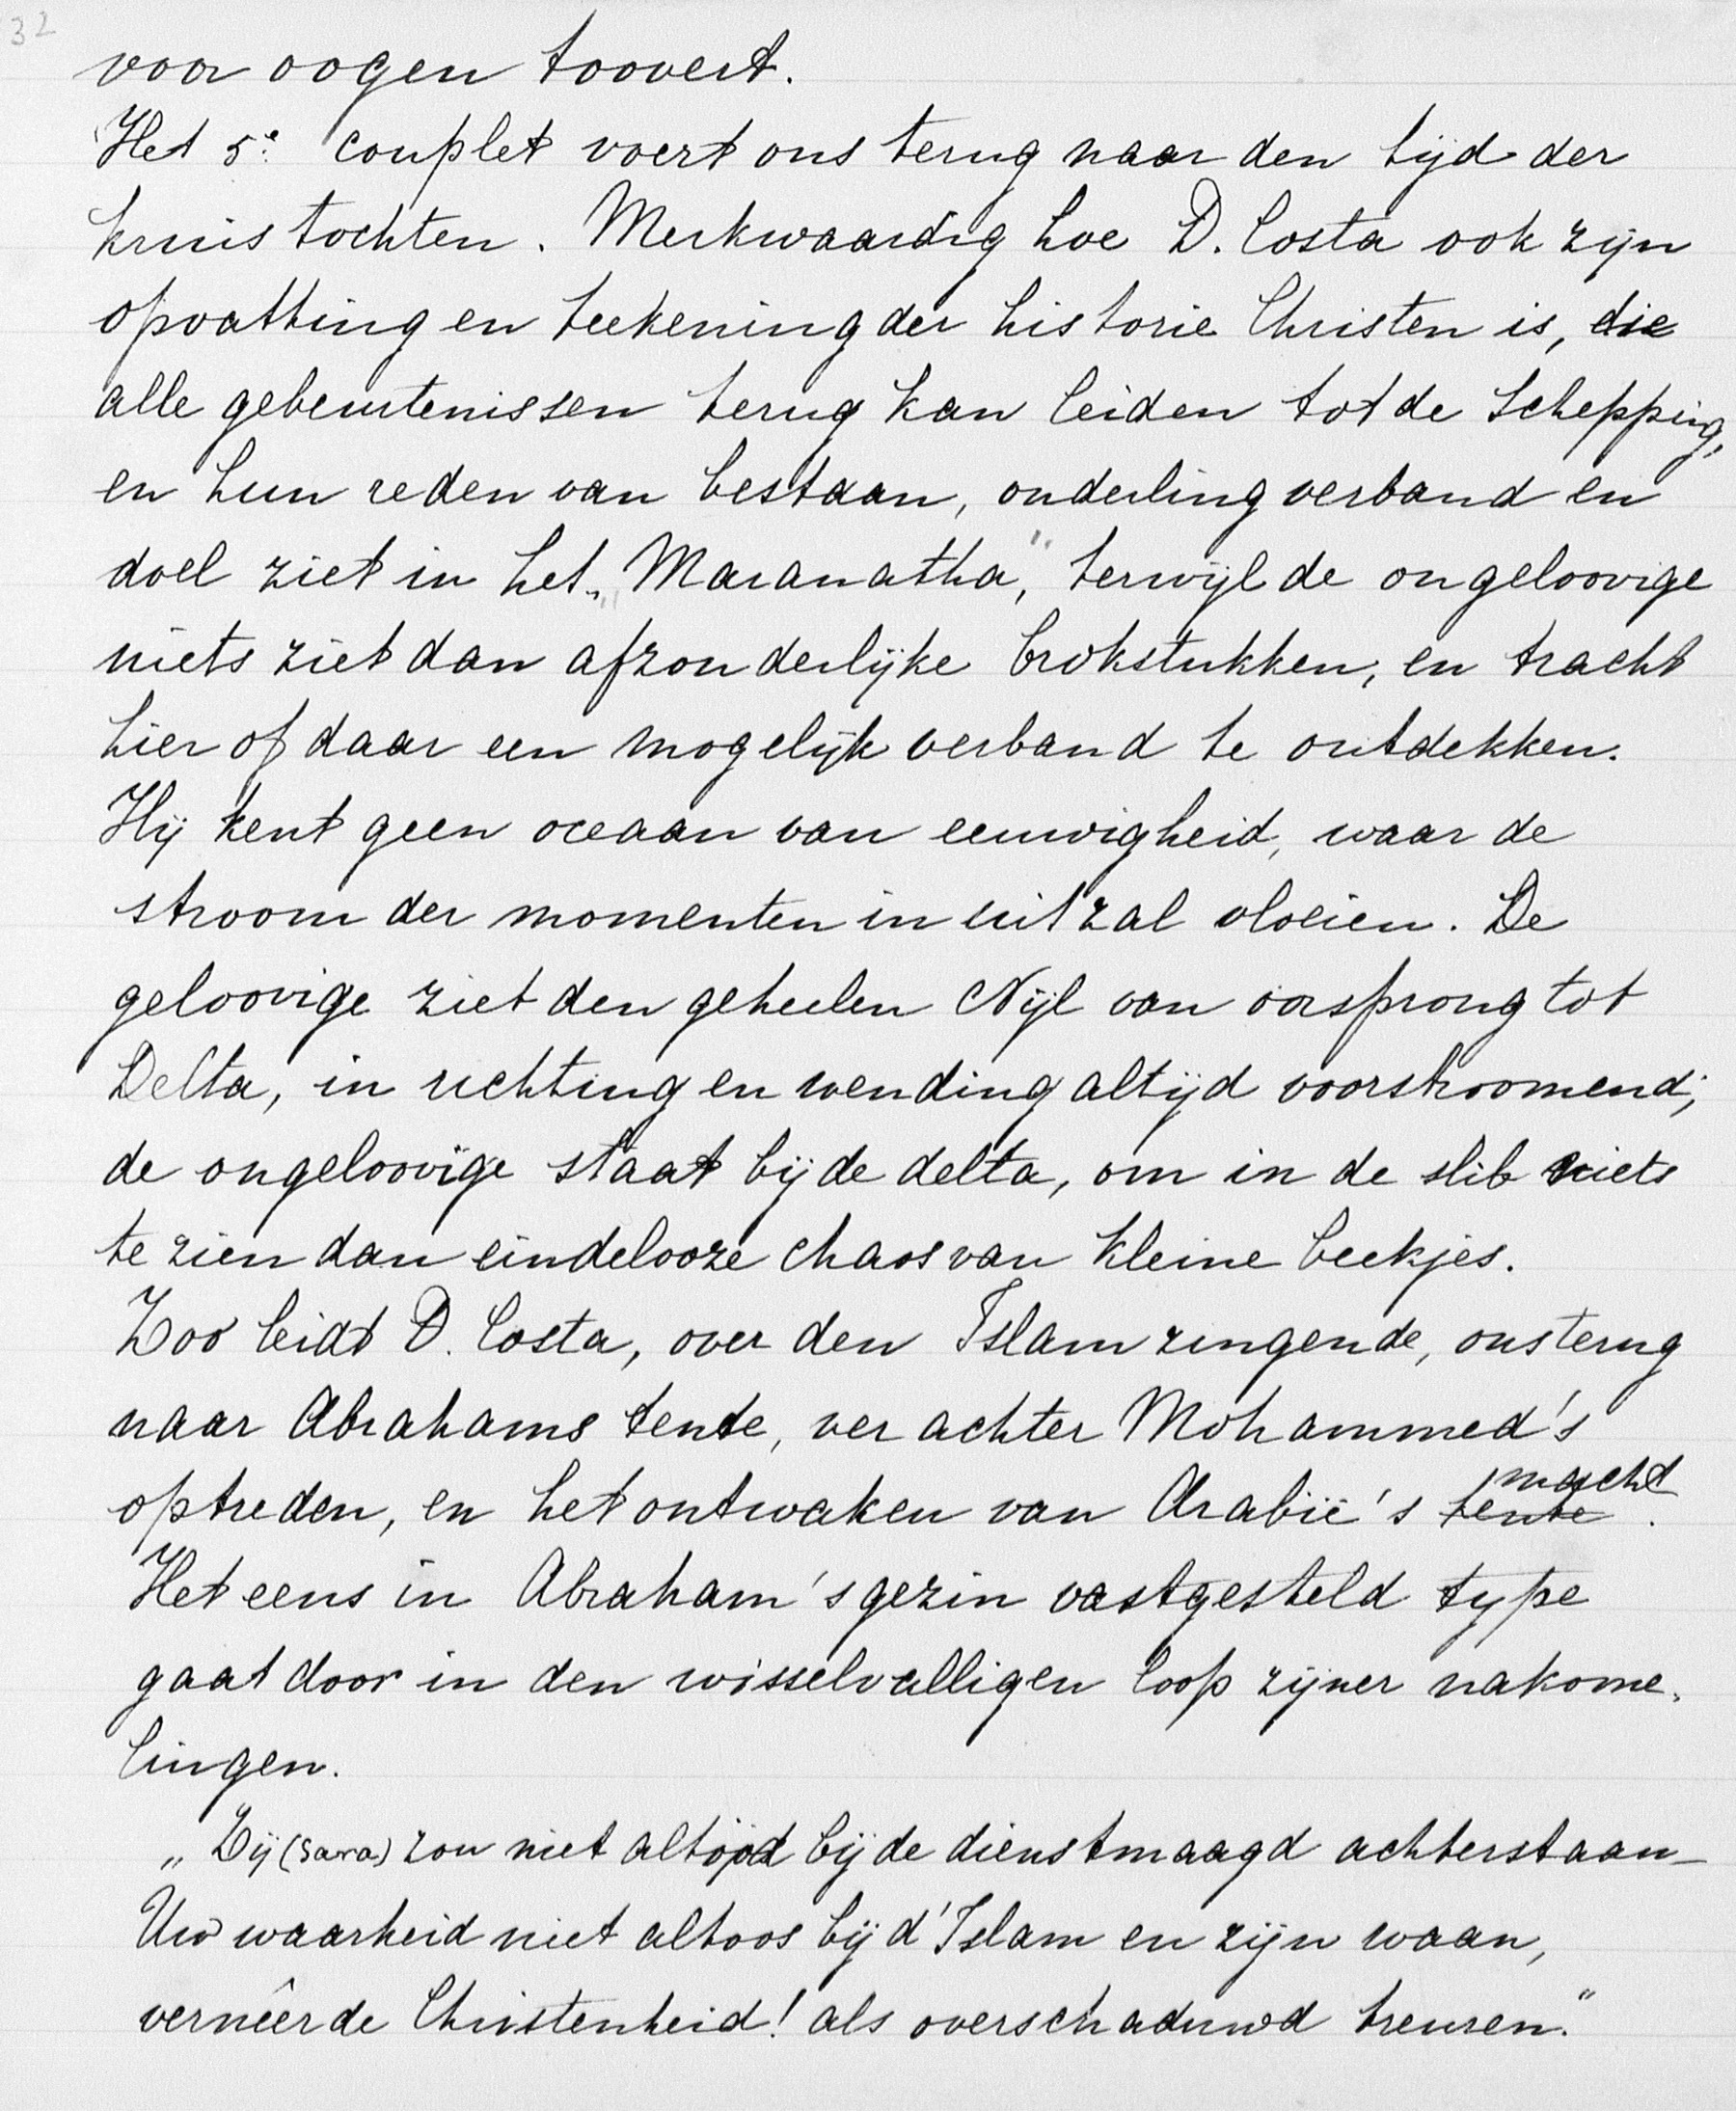 32
voor oogen toovert.
Het 5e couplet voert ons terug naar den tijd der
kruistochten. Merkwaardig hoe D. Costa ook zijn
opvatting en teekening der historie Christen is, die
alle gebeurtenissen terug kan leiden tot de Schepping,
en hun reden van bestaan, onderling verband en
doel ziet in het „Maranatha", terwijl de ongeloovige
niets ziet dan afzonderlijke brokstukken, en tracht
hier of daar een mogelijk verband te ontdekken.
Hij kent geen oceaan van eeuwigheid, waar de
stroom der momenten in uit zal vloeien. De
geloovige ziet den geheelen Nijl van oorsprong tot
Delta, in richting en wending altijd voorstroomend;
de ongeloovige staat bij de delta, om in de slib niets
te zien dan eindelooze chaos van kleine beekjes.
Zoo leidt D. Costa, over den Islam zingende, ons terug
naar Abrahams tente, ver achter Mohammed's
optreden, en het ontwaken van Arabië's tente macht.
Het eens in Abraham's gezin vastgesteld type
gaat door in den wisselvalligen loop zijner nakome-
lingen.
„Zij (Sara) zou niet altijd bij de dienstmaagd achterstaan_
Uw waarheid niet altoos bij d'Islam en zijn waan,
verneêrde Christenheid! als overschaduwd treuren."